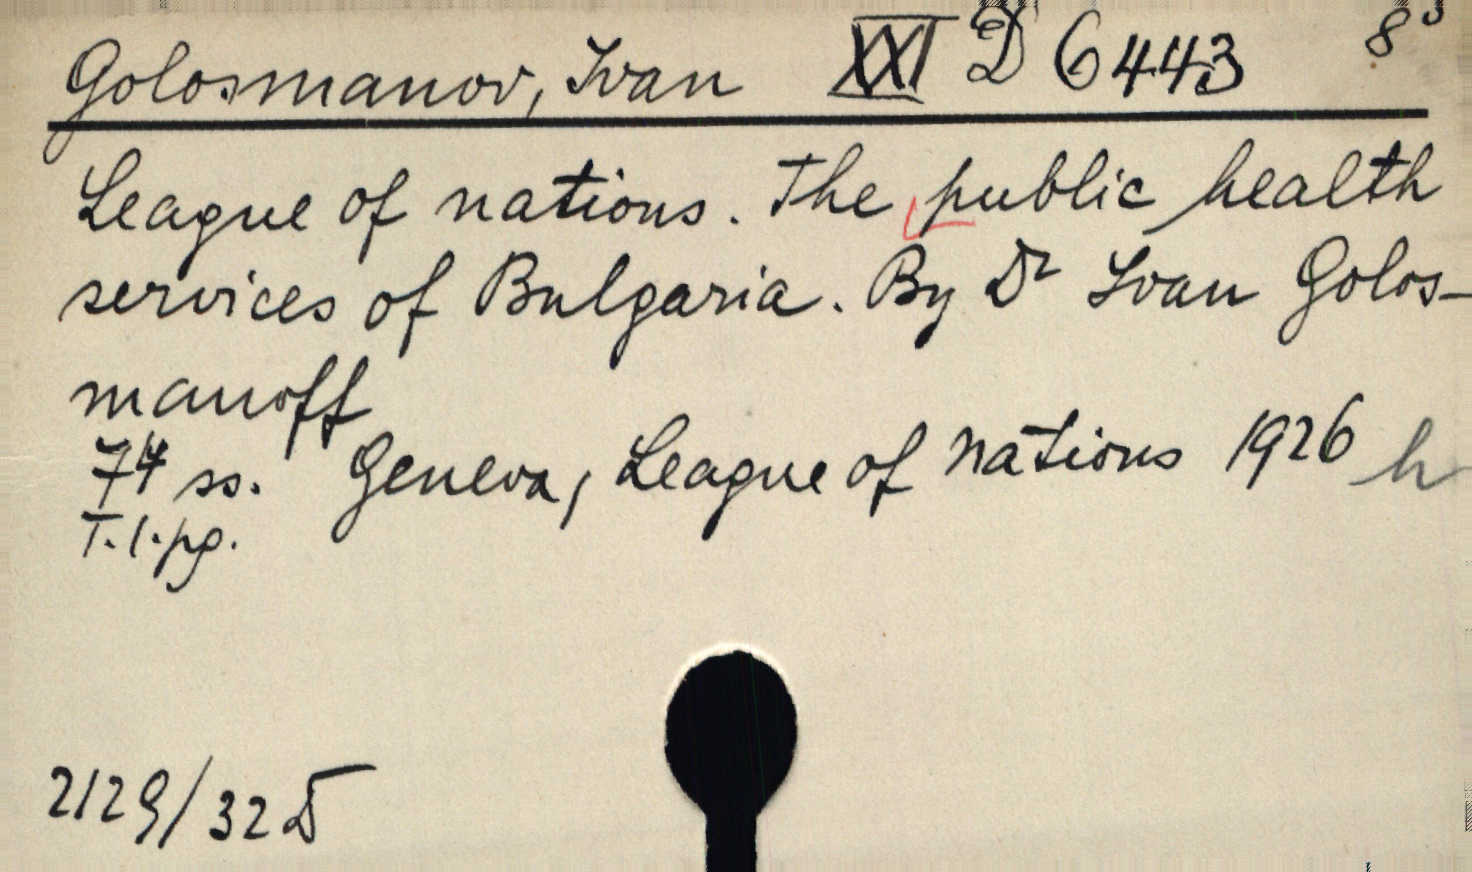 Golosmanov, Ivan XXI D 6443 8°
League of nations. The public health
services of Bulgaria. By Dr Ivan Golos-
manoff
74 ss. Geneva, League of nations 1926 h
T. l. pg.
2129/32 D